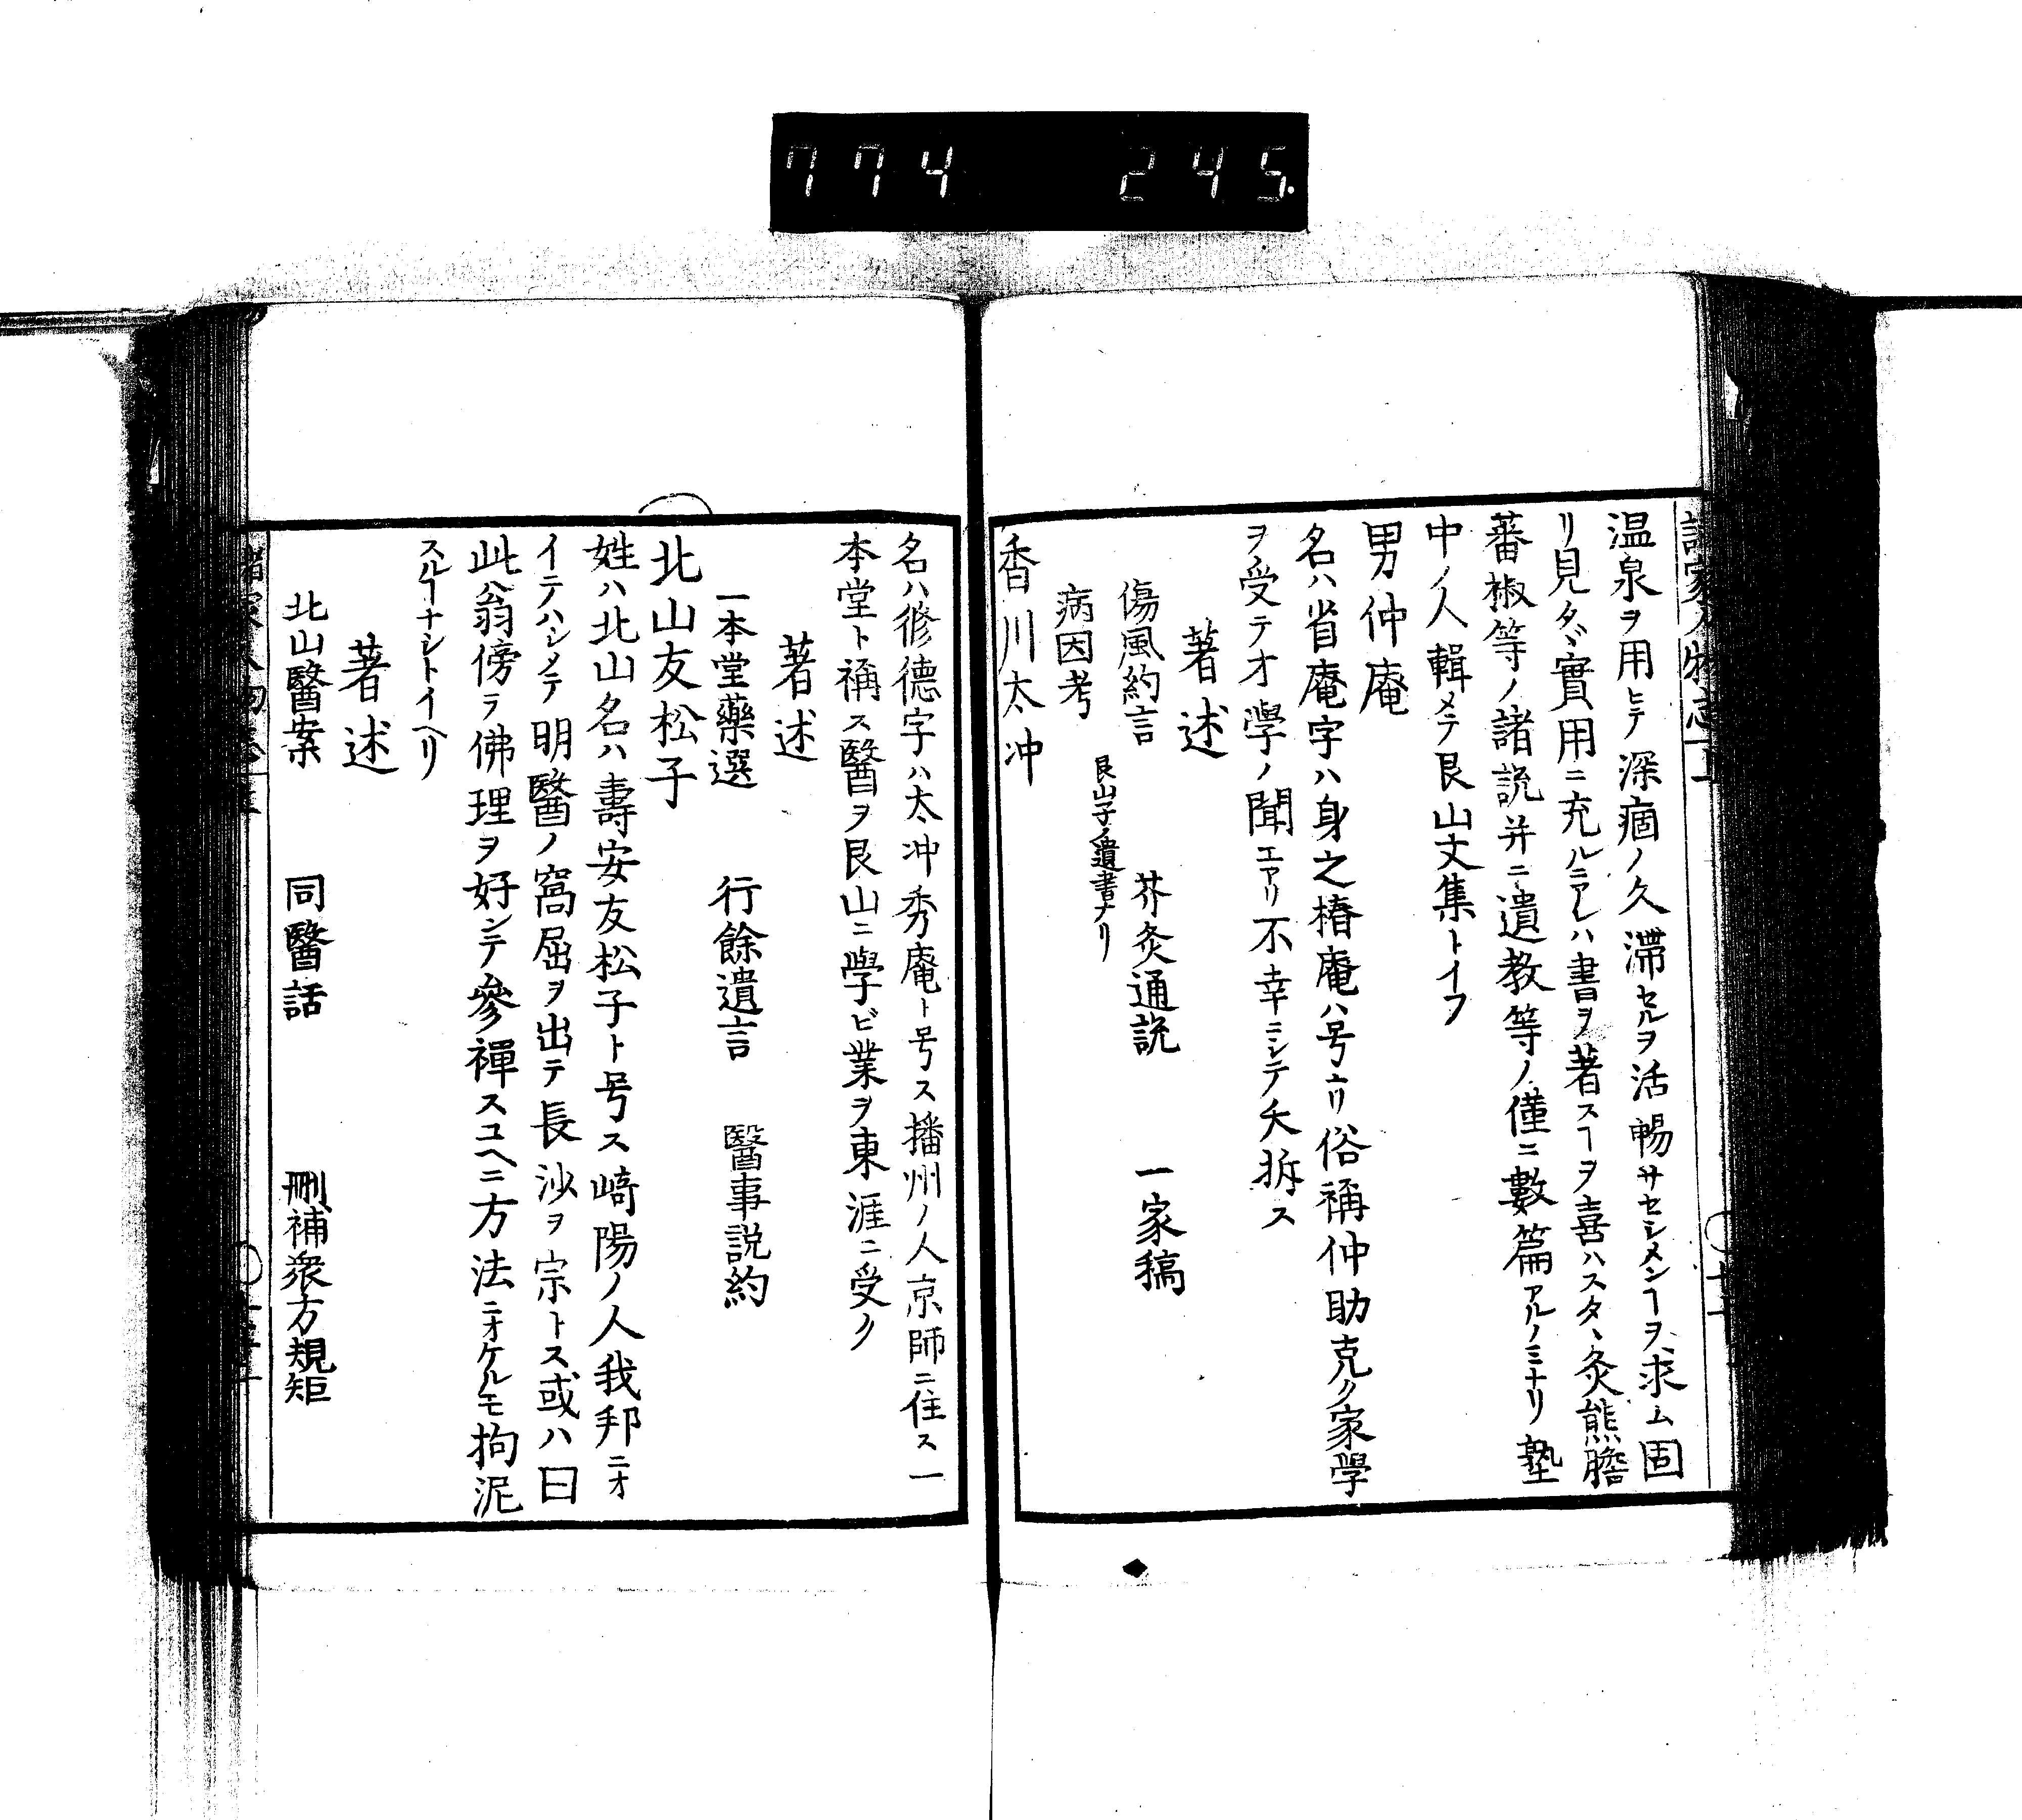 774 245.
温泉ヲ用ヒテ深痼ノ久滞セルヲ活暢サセシメンヿヲ求ム固
リ見タヾ實用ニ充ルニアレハ書ヲ著スヿヲ喜ハスタヽ灸熊膽
蕃椒等ノ諸説并ニ遺教等ノ僅ニ數篇アルノミナリ塾
中ノ人輯メテ艮山文集トイフ
男仲庵
名ハ省庵字ハ身之椿庵ハ号ナリ俗稱仲助克ク家學
ヲ受テオ學ノ聞エアリ不幸ニシテ夭拆ス
著述
傷風約言 芥灸通説 一家稿
病因考 艮山子ノ遺書ナリ
香川太冲
名ハ修德字ハ太冲秀庵ト号ス播州ノ人京師ニ住ス一
本堂ト稱ス醫ヲ艮山ニ學ビ業ヲ東涯ニ受ク
著述
一本堂藥選 行餘遺言 醫事説約
北山友松子
姓ハ北山名ハ壽安友松子ト号ス﨑陽ノ人我邦ニオ
イテハシメテ明醫ノ窩屈ヲ出テ長沙ヲ宗トス或ハ曰
此翁傍ラ佛理ヲ好ンテ參禪スユヘニ方法ニオケルモ拘泥
スルヿナシトイヘリ
著述
北山醫案 同醫話 刪補衆方規矩